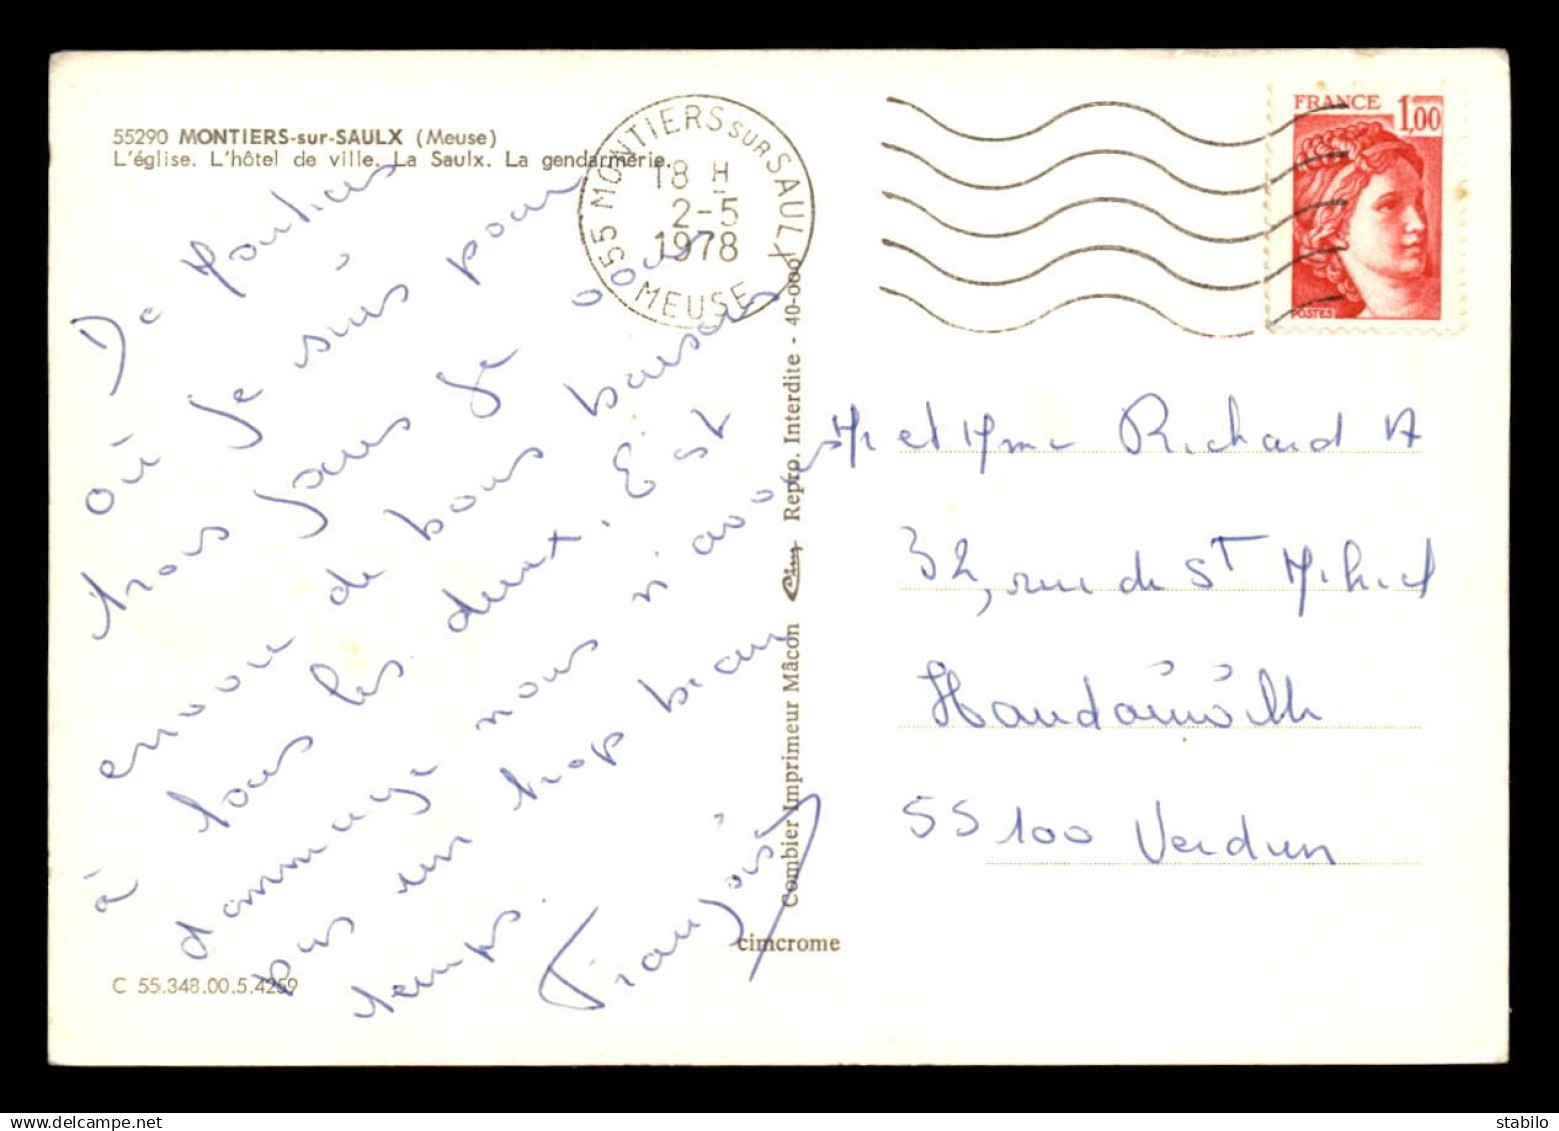 55290 MONTIERS-sur-SAULX (Meuse)
L'église. L'hôtel de ville. La Saulx. La gendarmerie.
De Montiers
où je suis pour
trois jours je vous
envoie de bons baisers
à tous les deux. Est
dommage nous n'avons
pas un trop beau
temps.
Françoise
C 55.348.00.5.4259
055 MONTIERS sur SAULX
18 H
2-5
1978
MEUSE
Combier Imprimeur Mâcon Cim Repro. Interdite - 40-000
cimcrome
FRANCE 1,00
POSTES
Mr et Mme Richard A
32, rue de St Mihiel
Haudainville
55100 Verdun
stabilo